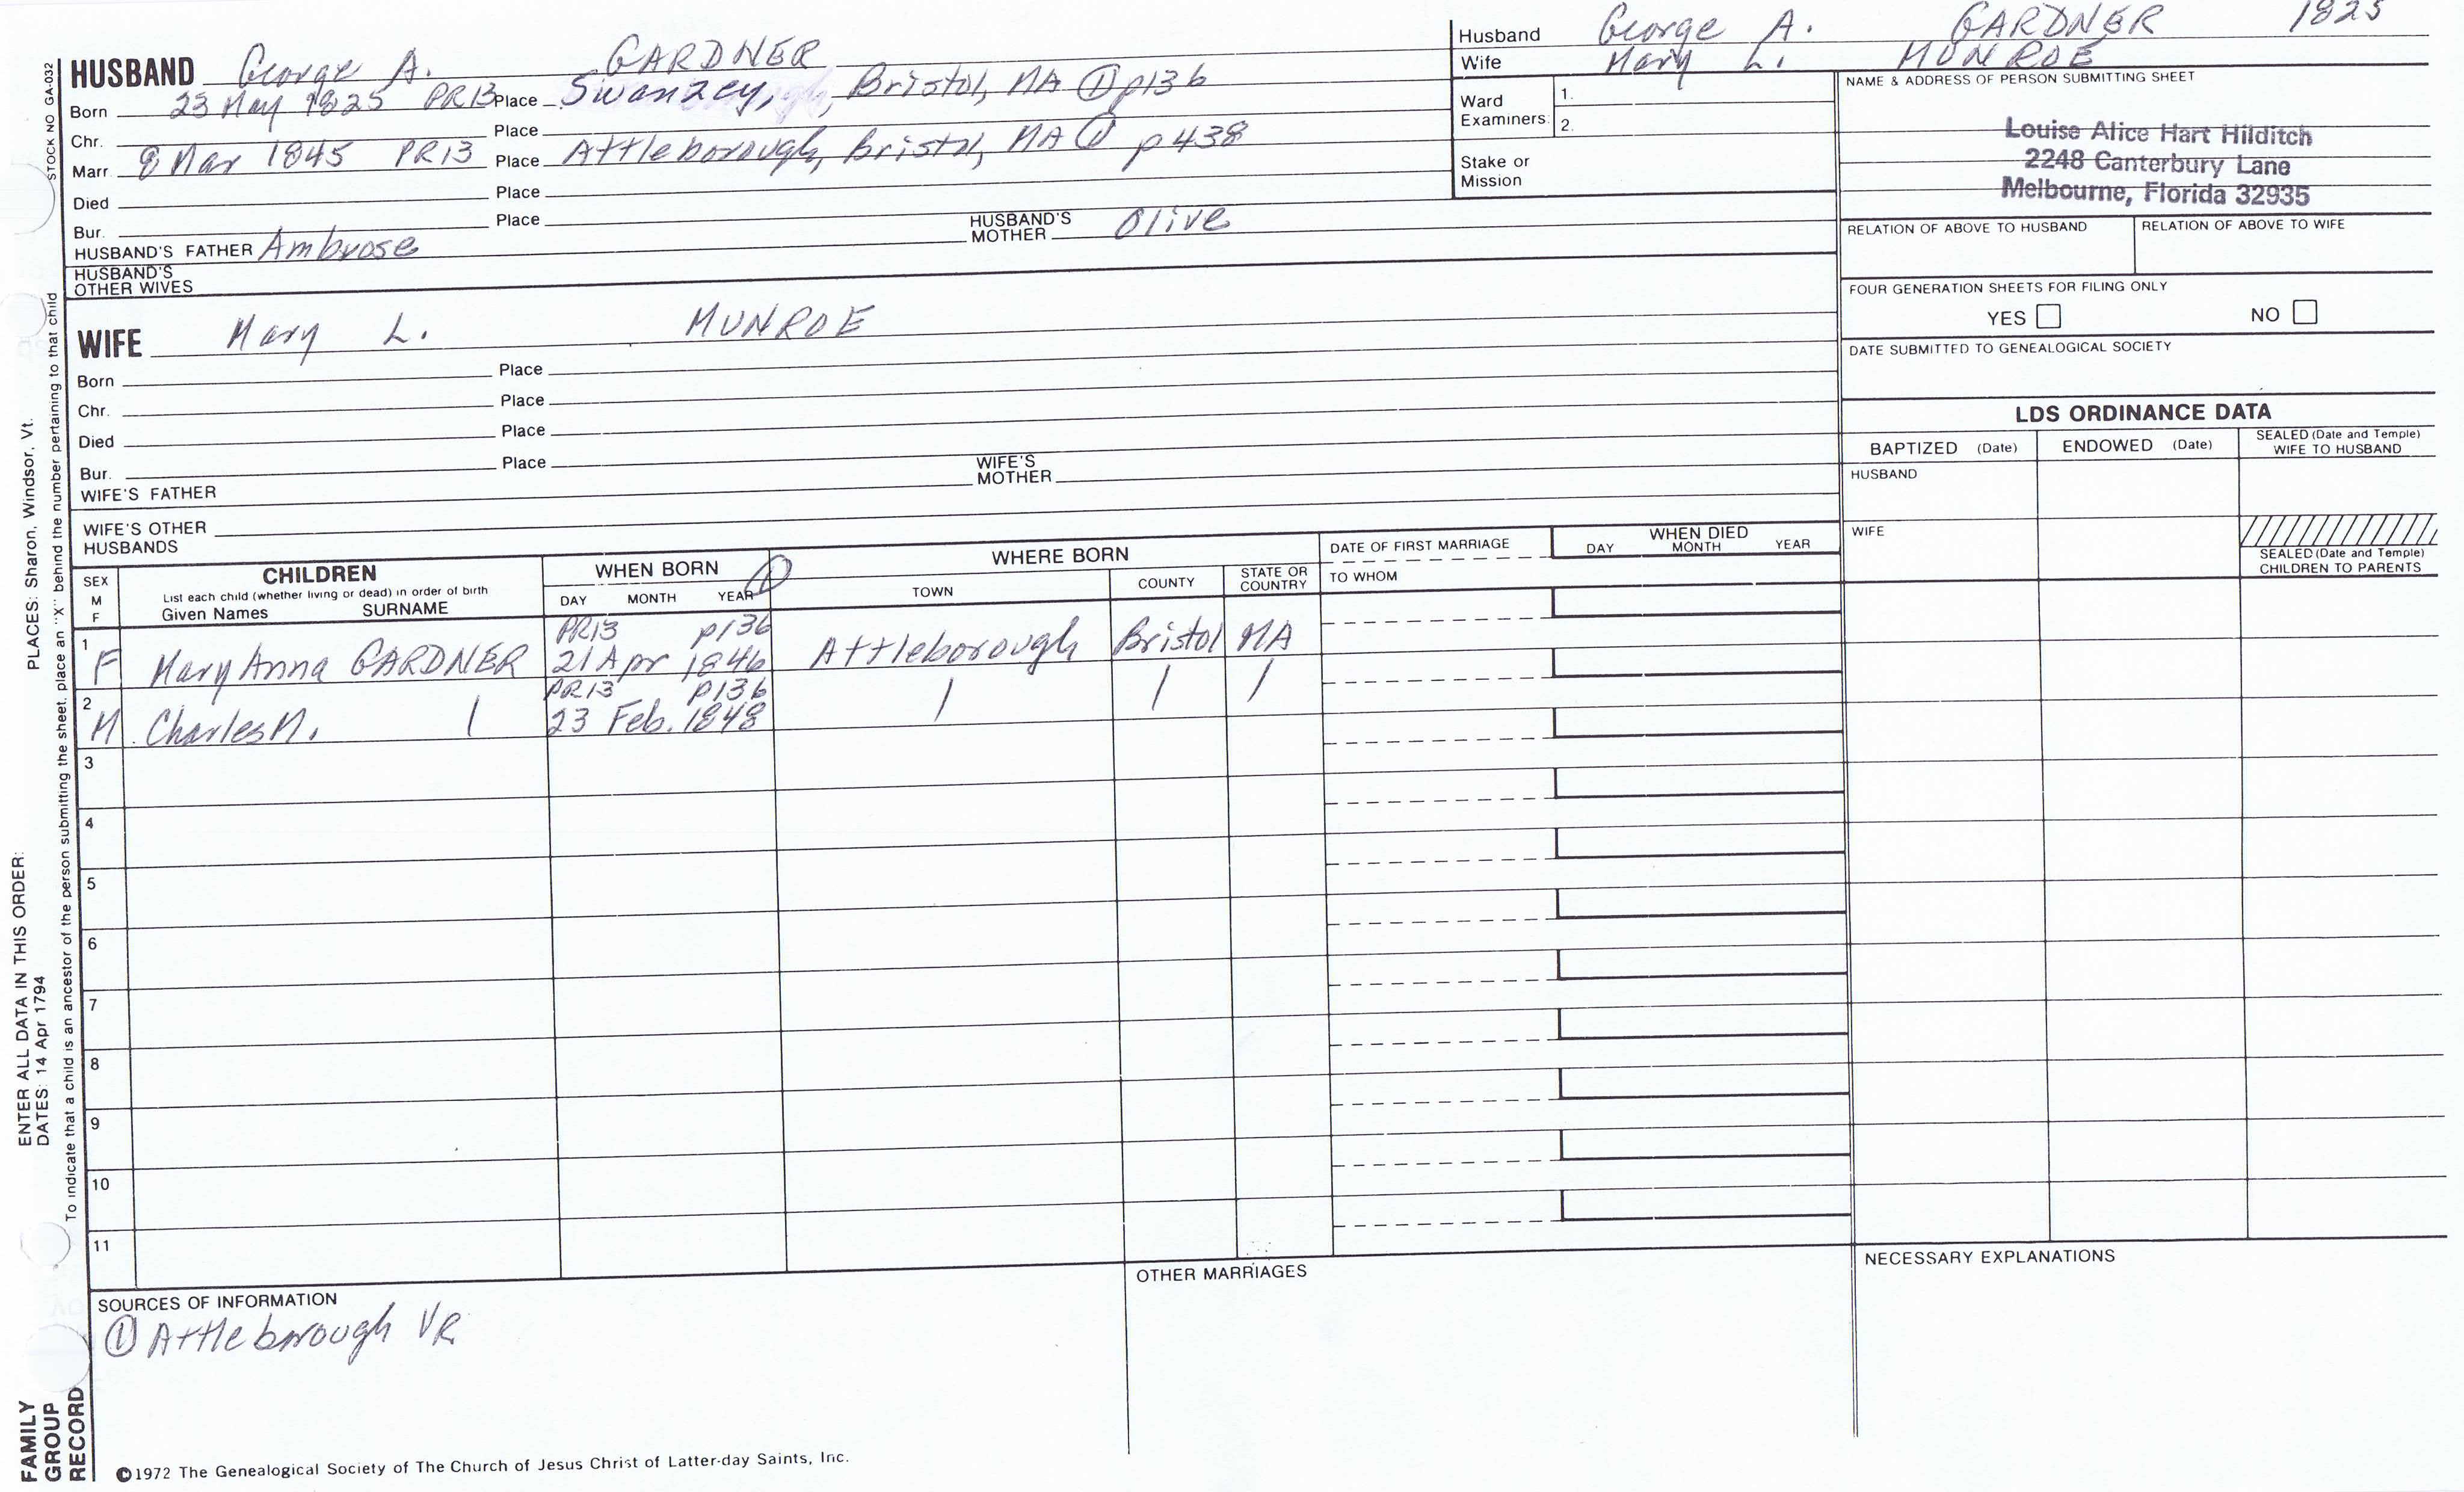 STOCK NO GA-032
PLACES: Sharon, Windsor, Vt.
ENTER ALL DATA IN THIS ORDER:
DATES: 14 Apr 1794
To indicate that a child is an ancestor of the person submitting the sheet, place an "X" behind the number pertaining to that child
FAMILY
GROUP
RECORD
HUSBAND George A. GARDNER
Born 23 May 1825 PR13 Place Swanzey, Bristol, MA ① p136
Chr. Place
Marr. 8 Mar 1845 PR13 Place Attleborough, Bristol, MA ① p438
Died Place
Bur. Place
HUSBAND'S FATHER Ambrose HUSBAND'S MOTHER Olive
HUSBAND'S
OTHER WIVES
WIFE Mary L. MUNROE
Born Place
Chr. Place
Died Place
Bur. Place
WIFE'S FATHER WIFE'S MOTHER
WIFE'S OTHER
HUSBANDS
Husband George A. GARDNER 1825
Wife Mary L. MUNROE
Ward
Examiners: 1.
2.
Stake or
Mission
NAME & ADDRESS OF PERSON SUBMITTING SHEET
Louise Alice Hart Hilditch
2248 Canterbury Lane
Melbourne, Florida 32935
RELATION OF ABOVE TO HUSBAND RELATION OF ABOVE TO WIFE
FOUR GENERATION SHEETS FOR FILING ONLY
YES NO
DATE SUBMITTED TO GENEALOGICAL SOCIETY
LDS ORDINANCE DATA
BAPTIZED (Date) ENDOWED (Date) SEALED (Date and Temple)
WIFE TO HUSBAND
HUSBAND
WIFE
SEALED (Date and Temple)
CHILDREN TO PARENTS
SEX
M
F
CHILDREN
List each child (whether living or dead) in order of birth
Given Names SURNAME
WHEN BORN ①
DAY MONTH YEAR
WHERE BORN
TOWN COUNTY STATE OR COUNTRY
DATE OF FIRST MARRIAGE
TO WHOM
WHEN DIED
DAY MONTH YEAR
PR13 p136
1 F Mary Anna GARDNER 21 Apr 1846 Attleborough Bristol MA
PR13 p136
2 M Charles M. | 23 Feb. 1848 | | |
3
4
5
6
7
8
9
10
11
SOURCES OF INFORMATION
① Attleborough VR
OTHER MARRIAGES
NECESSARY EXPLANATIONS
©1972 The Genealogical Society of The Church of Jesus Christ of Latter-day Saints, Inc.